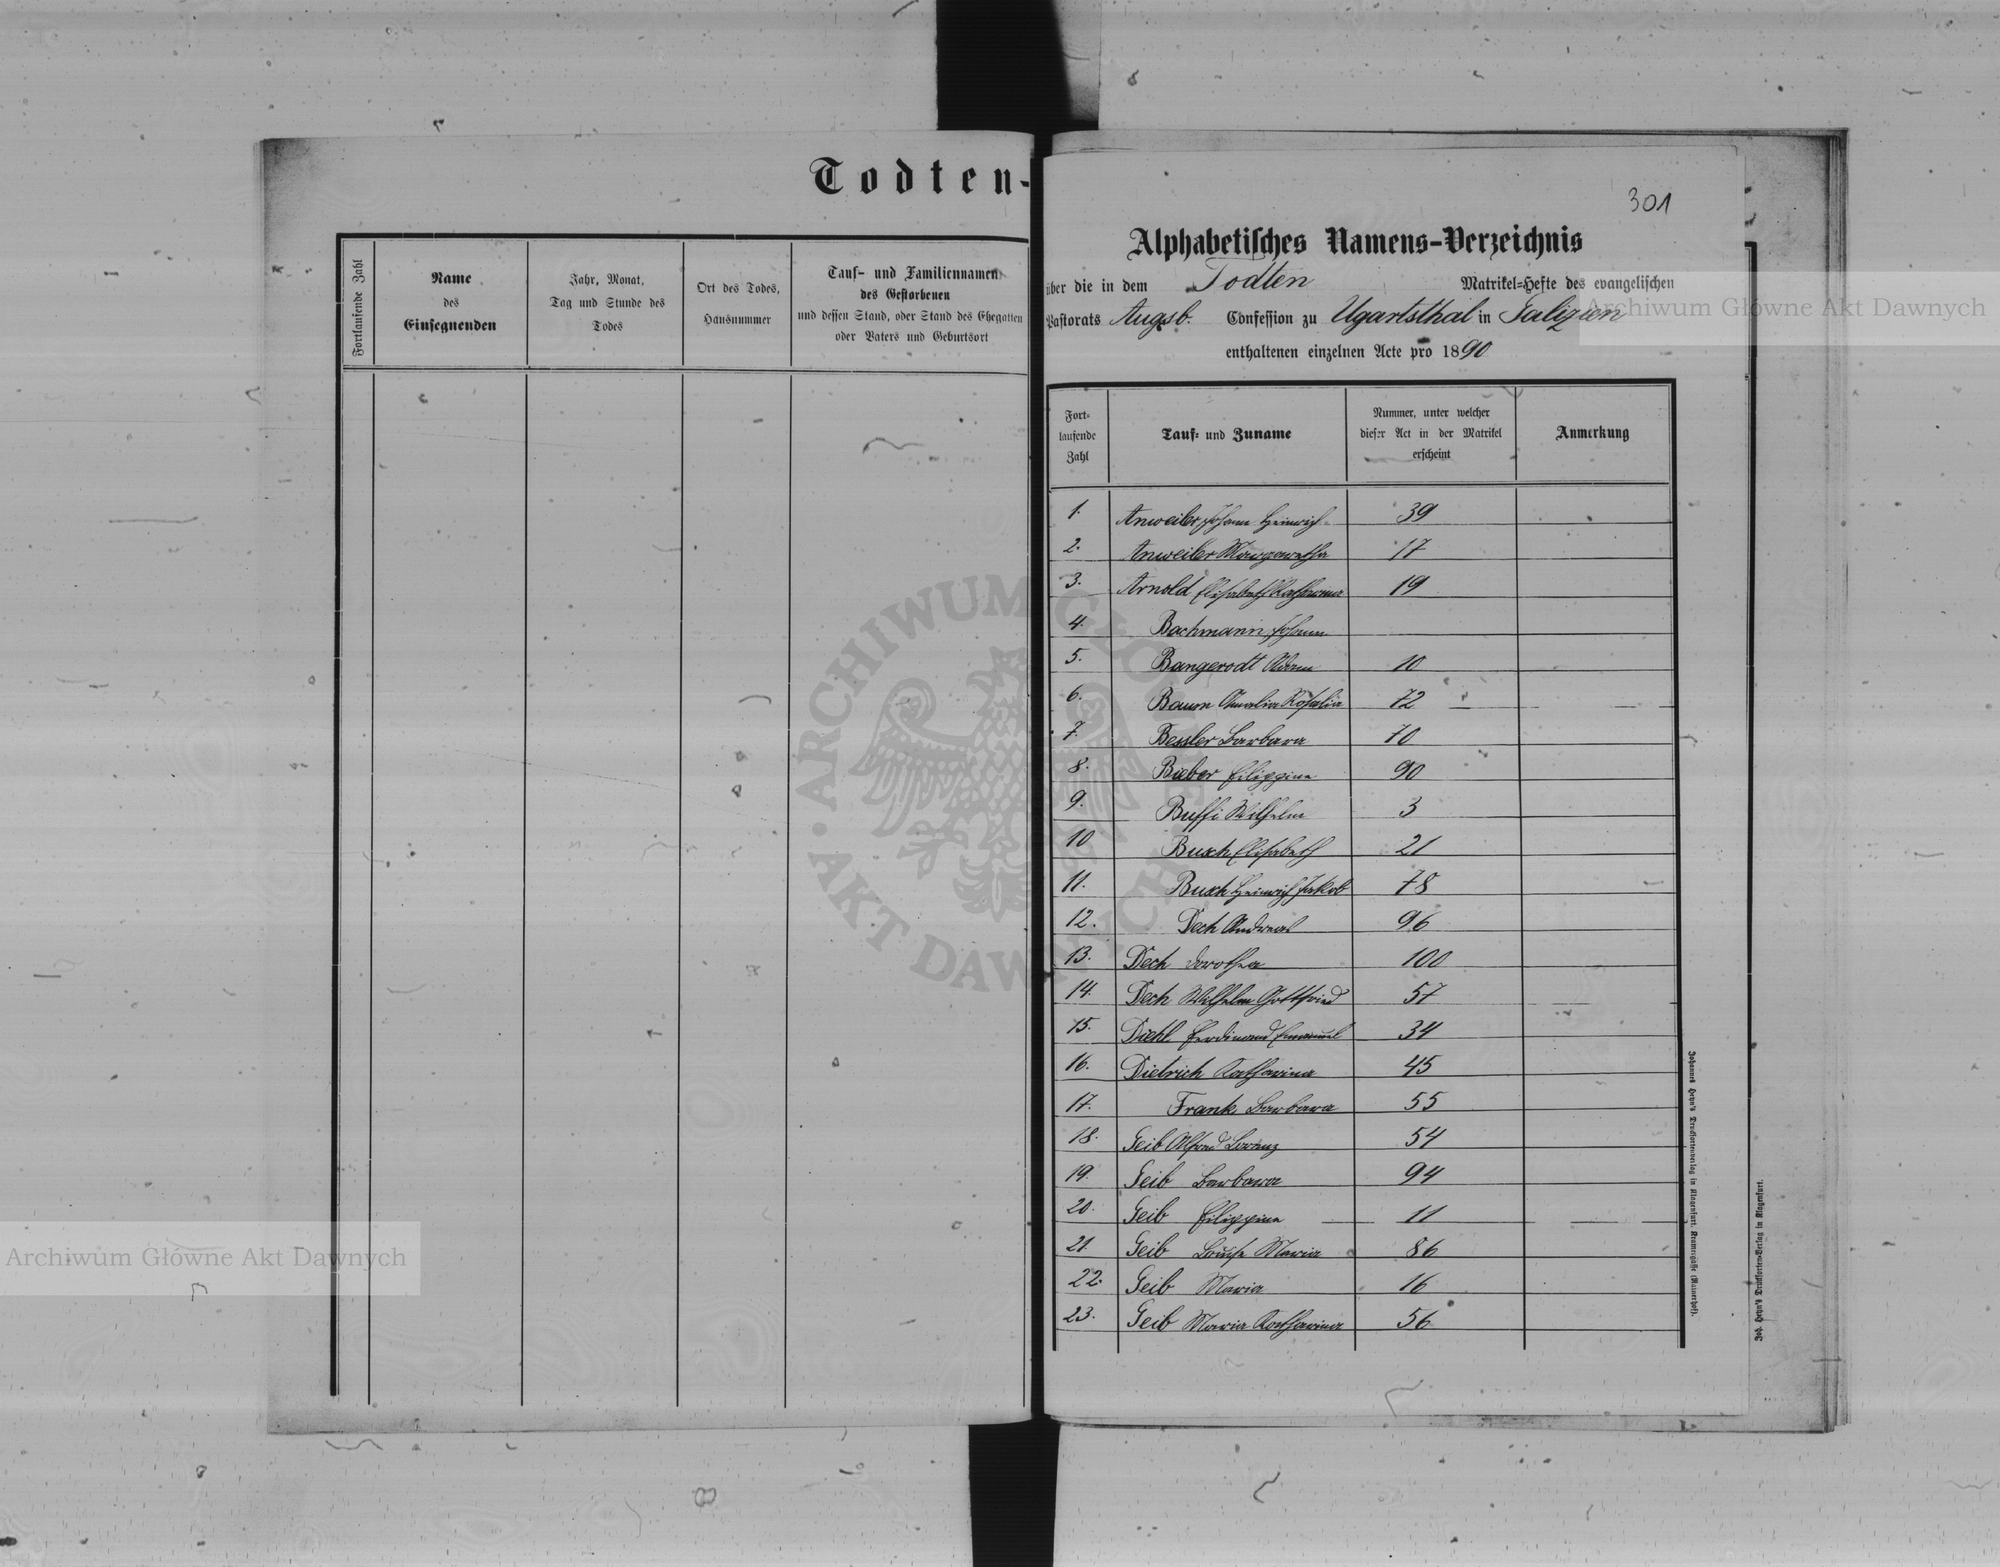 Todten-
Fortlaufende Zahl
Name
des
Einsegnenden
Jahr, Monat,
Tag und Stunde des
Todes
Ort des Todes,
Hausnummer
Tauf- und Familiennamen
des Gestorbenen
und dessen Stand, oder Stand des Ehegatten
oder Vaters und Geburtsort
301
Alphabetisches Namens-Verzeichnis
über die in dem Todten Matrikel-Hefte des evangelischen
Pastorats Augsb. Confession zu Ugartsthal in Galizien
enthaltenen einzelnen Acte pro 1890
Fort-
laufende
Zahl
Tauf- und Zuname
Nummer, unter welcher
dieser Act in der Matrikel
erscheint
Anmerkung
1. Anweiler Johann Heinrich 39
2. Anweiler Margaretha 17
3. Arnold Elisabeth Katharina 19
4. Bachmann Johann
5. Bangerodt Adam 10
6. Baum Amalia Rosalia 72
7. Bessler Barbara 70
8. Bieber Filippina 90
9. Buffi Wilhelm 3
10 Buxh Elisabeth 21
11. Buxh Heinrich Jakob 78
12. Dech Andreas 96
13. Dech Dorothea 100
14. Dech Wilhelm Gottfried 57
15. Diehl Ferdinand Emanuel 34
16. Dietrich Katharina 45
17. Frank Barbara 55
18. Geib Alfred Lorenz 54
19. Geib Barbara 94
20. Geib Filippina 11
21 Geib Louise Maria 86
22. Geib Maria 16
23. Geib Maria Katharina 56
Johannes Heyn's Drucksortenverlag in Klagenfurt, Kramergasse (Mauerhof).
Joh. Heyn's Drucksorten-Verlag in Klagenfurt.
Archiwum Główne Akt Dawnych
Archiwum Główne Akt Dawnych
ARCHIWUM GŁÓWNE
AKT DAWNYCH